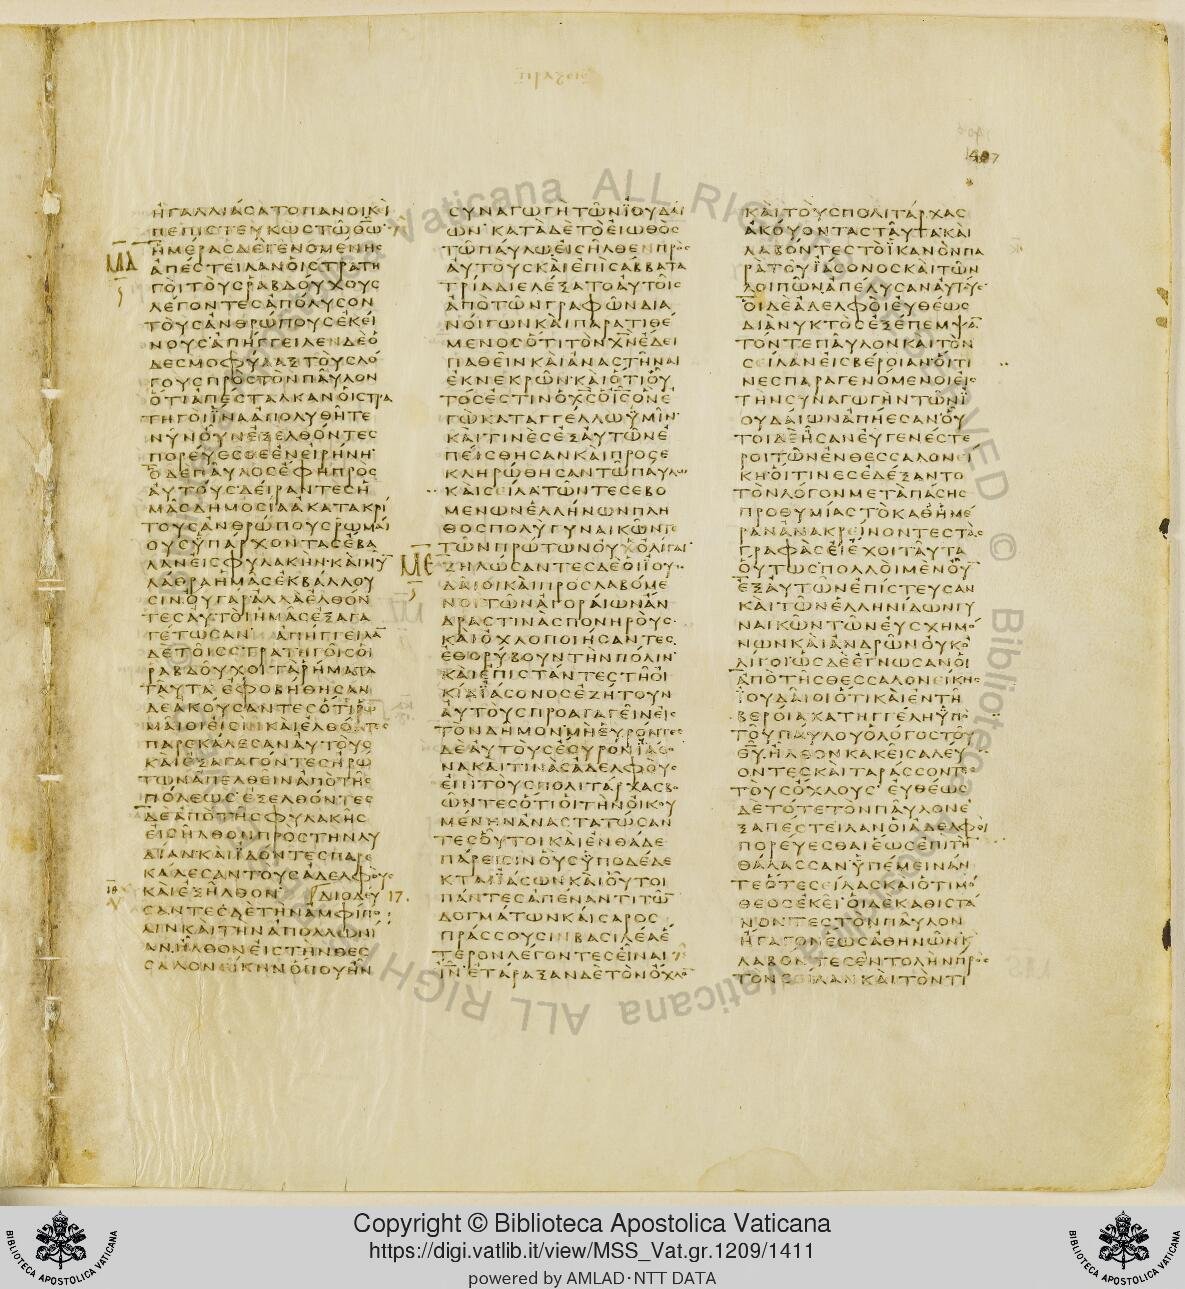 1407
ΗΓΑΛΛΙΑΣΑΤΟΠΑΝΟΙΚΙ
ΠΕΠΙΣΤΕΥΚΩΣΤΩΘΩ
ΗΜΕΡΑΣΔΕΓΕΝΟΜΕΝΗΣ
ΜΔ
ΑΠΕΣΤΕΙΛΑΝΟΙΣΤΡΑΤΗ
ΓΟΙΤΟΥΣΡΑΒΔΟΥΧΟΥΣ
ΛΕΓΟΝΤΕΣΑΠΟΛΥΣΟΝ
ΤΟΥΣΑΝΘΡΩΠΟΥΣΕΚΕΙ
ΝΟΥΣΑΠΗΓΓΕΙΛΕΝΔΕΟ
ΔΕΣΜΟΦΥΛΑΞΤΟΥΣΛΟ
ΓΟΥΣΠΡΟΣΤΟΝΠΑΥΛΟΝ
ΟΤΙΑΠΕΣΤΑΛΚΑΝΟΙΣΤΡΑ
ΤΗΓΟΙΙΝΑΑΠΟΛΥΘΗΤΕ
ΝΥΝΟΥΝΕΞΕΛΘΟΝΤΕΣ
ΠΟΡΕΥΕΣΘΕΕΝΕΙΡΗΝΗ
ΟΔΕΠΑΥΛΟΣΕΦΗΠΡΟΣ
ΑΥΤΟΥΣΔΕΙΡΑΝΤΕΣΗ
ΜΑΣΔΗΜΟΣΙΑΑΚΑΤΑΚΡΙ
ΤΟΥΣΑΝΘΡΩΠΟΥΣΡΩΜΑΙ
ΟΥΣΥΠΑΡΧΟΝΤΑΣΕΒΑ
ΛΑΝΕΙΣΦΥΛΑΚΗΝ·ΚΑΙΝΥ
ΛΑΘΡΑΗΜΑΣΕΚΒΑΛΛΟΥ
ΣΙΝΟΥΓΑΡΑΛΛΑΕΛΘΟΝ
ΤΕΣΑΥΤΟΙΗΜΑΣΕΞΑΓΑ
ΓΕΤΩΣΑΝ ΑΠΗΓΓΕΙΛΑ
ΔΕΤΟΙΣΣΤΡΑΤΗΓΟΙΣΟΙ
ΡΑΒΔΟΥΧΟΙΤΑΡΗΜΑΤΑ
ΤΑΥΤΑ ΕΦΟΒΗΘΗΣΑΝ
ΔΕΑΚΟΥΣΑΝΤΕΣΟΤΙΡΩ
ΜΑΙΟΙΕΙΣΙΝΚΑΙΕΛΘΟΝΤΕΣ
ΠΑΡΕΚΑΛΕΣΑΝΑΥΤΟΥΣ
ΚΑΙΕΞΑΓΑΓΟΝΤΕΣΗΡΩ
ΤΩΝΑΠΕΛΘΕΙΝΑΠΟΤΗΣ
ΠΟΛΕΩΣ ΕΞΕΛΘΟΝΤΕΣ
ΔΕΑΠΟΤΗΣΦΥΛΑΚΗΣ
ΕΙΣΗΛΘΟΝΠΡΟΣΤΗΝΛΥ
ΔΙΑΝΚΑΙΙΔΟΝΤΕΣΠΑΡΕ
ΚΑΛΕΣΑΝΤΟΥΣΑΔΕΛΦΟΥΣ
ΚΑΙΕΞΗΛΘΟΝ ΔΙΟΔΕΥ 17.
ΣΑΝΤΕΣΔΕΤΗΝΑΜΦΙΠΟ
ΛΙΝΚΑΙΤΗΝΑΠΟΛΛΩΝΙ
ΑΝ.ΗΛΘΟΝΕΙΣΤΗΝΘΕΣ
ΣΑΛΟΝΕΙΚΗΝΟΠΟΥΗΝ
ΣΥΝΑΓΩΓΗΤΩΝΙΟΥΔΑΙ
ΩΝ ΚΑΤΑΔΕΤΟΕΙΩΘΟΣ
ΤΩΠΑΥΛΩΕΙΣΗΛΘΕΝΠΡΟΣ
ΑΥΤΟΥΣΚΑΙΕΠΙΣΑΒΒΑΤΑ
ΤΡΙΑΔΙΕΛΕΞΑΤΟΑΥΤΟΙΣ
ΑΠΟΤΩΝΓΡΑΦΩΝΔΙΑ
ΝΟΙΓΩΝΚΑΙΠΑΡΑΤΙΘΕ
ΜΕΝΟΣΟΤΙΤΟΝΧΝΕΔΕΙ
ΠΑΘΕΙΝΚΑΙΑΝΑΣΤΗΝΑΙ
ΕΚΝΕΚΡΩΝ·ΚΑΙΟΤΙΟΥ
ΤΟΣΕΣΤΙΝΟΧΣΟΙΣΟΝΕ
ΓΩΚΑΤΑΓΓΕΛΛΩΥΜΙΝ
ΚΑΙΤΙΝΕΣΕΞΑΥΤΩΝΕ
ΠΕΙΣΘΗΣΑΝΚΑΙΠΡΟΣΕ
ΚΛΗΡΩΘΗΣΑΝΤΩΠΑΥΛΩ
ΚΑΙΣΕΙΛΑΤΩΝΤΕΣΕΒΟ
ΜΕΝΩΝΕΛΛΗΝΩΝΠΛΗ
ΘΟΣΠΟΛΥΓΥΝΑΙΚΩΝΤΕ
ΤΩΝΠΡΩΤΩΝΟΥΚΟΛΙΓΑΙ
ΜΕ
ΖΗΛΩΣΑΝΤΕΣΔΕΟΙΙΟΥ
ΔΑΙΟΙΚΑΙΠΡΟΣΛΑΒΟΜΕ
ΝΟΙΤΩΝΑΓΟΡΑΙΩΝΑΝ
ΔΡΑΣΤΙΝΑΣΠΟΝΗΡΟΥΣ
ΚΑΙΟΧΛΟΠΟΙΗΣΑΝΤΕΣ
ΕΘΟΡΥΒΟΥΝΤΗΝΠΟΛΙΝ
ΚΑΙΕΠΙΣΤΑΝΤΕΣΤΗΟΙ
ΚΙΑΙΑΣΟΝΟΣΕΖΗΤΟΥΝ
ΑΥΤΟΥΣΠΡΟΑΓΑΓΕΙΝΕΙΣ
ΤΟΝΔΗΜΟΝΜΗΕΥΡΟΝΤΕΣ
ΔΕΑΥΤΟΥΣΕΣΥΡΟΝΙΑΣΟ
ΝΑΚΑΙΤΙΝΑΣΑΔΕΛΦΟΥΣ
ΕΠΙΤΟΥΣΠΟΛΙΤΑΡΧΑΣΒΟ
ΩΝΤΕΣΟΤΙΟΙΤΗΝΟΙΚΟΥ
ΜΕΝΗΝΑΝΑΣΤΑΤΩΣΑΝ
ΤΕΣΟΥΤΟΙΚΑΙΕΝΘΑΔΕ
ΠΑΡΕΙΣΙΝΟΥΣΥΠΟΔΕΔΕ
ΚΤΑΙΙΑΣΩΝΚΑΙΟΥΤΟΙ
ΠΑΝΤΕΣΑΠΕΝΑΝΤΙΤΩ
ΔΟΓΜΑΤΩΝΚΑΙΣΑΡΟΣ
ΠΡΑΣΣΟΥΣΙΝΒΑΣΙΛΕΑΕ
ΤΕΡΟΝΛΕΓΟΝΤΕΣΕΙΝΑΙ
ΙΝ ΕΤΑΡΑΞΑΝΔΕΤΟΝΟΧΛΟ
ΚΑΙΤΟΥΣΠΟΛΙΤΑΡΧΑΣ
ΑΚΟΥΟΝΤΑΣΤΑΥΤΑΚΑΙ
ΛΑΒΟΝΤΕΣΤΟΙΚΑΝΟΝΠΑ
ΡΑΤΟΥΙΑΣΟΝΟΣΚΑΙΤΩΝ
ΛΟΙΠΩΝΑΠΕΛΥΣΑΝΑΥΤΟΥΣ
ΟΙΔΕΑΔΕΛΦΟΙΕΥΘΕΩΣ
ΔΙΑΝΥΚΤΟΣΕΞΕΠΕΜΨΑ
ΤΟΝΤΕΠΑΥΛΟΝΚΑΙΤΟΝ
ΣΕΙΛΑΝΕΙΣΒΕΡΟΙΑΝΟΙΤΙ
ΝΕΣΠΑΡΑΓΕΝΟΜΕΝΟΙΕΙΣ
ΤΗΝΣΥΝΑΓΩΓΗΝΤΩΝΙ
ΟΥΔΑΙΩΝΑΠΗΕΣΑΝΟΥ
ΤΟΙΔΕΗΣΑΝΕΥΓΕΝΕΣΤΕ
ΡΟΙΤΩΝΕΝΘΕΣΣΑΛΟΝΕΙ
ΚΗ·ΟΙΤΙΝΕΣΕΔΕΞΑΝΤΟ
ΤΟΝΛΟΓΟΝΜΕΤΑΠΑΣΗΣ
ΠΡΟΘΥΜΙΑΣΤΟΚΑΘΗΜΕ
ΡΑΝΑΝΑΚΡΕΙΝΟΝΤΕΣΤΑΣ
ΓΡΑΦΑΣΕΙΕΧΟΙΤΑΥΤΑ
ΟΥΤΩΣΠΟΛΛΟΙΜΕΝΟΥ
ΕΞΑΥΤΩΝΕΠΙΣΤΕΥΣΑΝ
ΚΑΙΤΩΝΕΛΛΗΝΙΔΩΝΓΥ
ΝΑΙΚΩΝΤΩΝΕΥΣΧΗΜΟ
ΝΩΝΚΑΙΑΝΔΡΩΝΟΥΚΟ
ΛΙΓΟΙΩΣΔΕΕΓΝΩΣΑΝΟΙ
ΑΠΟΤΗΣΘΕΣΣΑΛΟΝΕΙΚΗΣ
ΙΟΥΔΑΙΟΙΟΤΙΚΑΙΕΝΤΗ
ΒΕΡΟΙΑΚΑΤΗΓΓΕΛΗΥΠΟ
ΤΟΥΠΑΥΛΟΥΟΛΟΓΟΣΤΟΥ
ΘΥ.ΗΛΘΟΝΚΑΚΕΙΣΑΛΕΥ
ΟΝΤΕΣΚΑΙΤΑΡΑΣΣΟΝΤΕΣ
ΤΟΥΣΟΧΛΟΥΣ ΕΥΘΕΩΣ
ΔΕΤΟΤΕΤΟΝΠΑΥΛΟΝΕ
ΞΑΠΕΣΤΕΙΛΑΝΟΙΑΔΕΛΦΟΙ
ΠΟΡΕΥΕΣΘΑΙΕΩΣΕΠΙΤΗ
ΘΑΛΑΣΣΑΝΥΠΕΜΕΙΝΑΝ
ΤΕΟΤΕΣΕΙΛΑΣΚΑΙΟΤΙΜΟ
ΘΕΟΣΕΚΕΙ ΟΙΔΕΚΑΘΙΣΤΑ
ΝΟΝΤΕΣΤΟΝΠΑΥΛΟΝ
ΗΓΑΓΟΝΕΩΣΑΘΗΝΩΝΚ
ΛΑΒΟΝΤΕΣΕΝΤΟΛΗΝΠΡΟΣ
ΤΟΝΣΕΙΛΑΝΚΑΙΤΟΝΤΙ
Copyright © Biblioteca Apostolica Vaticana
https://digi.vatlib.it/view/MSS_Vat.gr.1209/1411
powered by AMLAD·NTT DATA
BIBLIOTECA APOSTOLICA VATICANA
BIBLIOTECA APOSTOLICA VATICANA